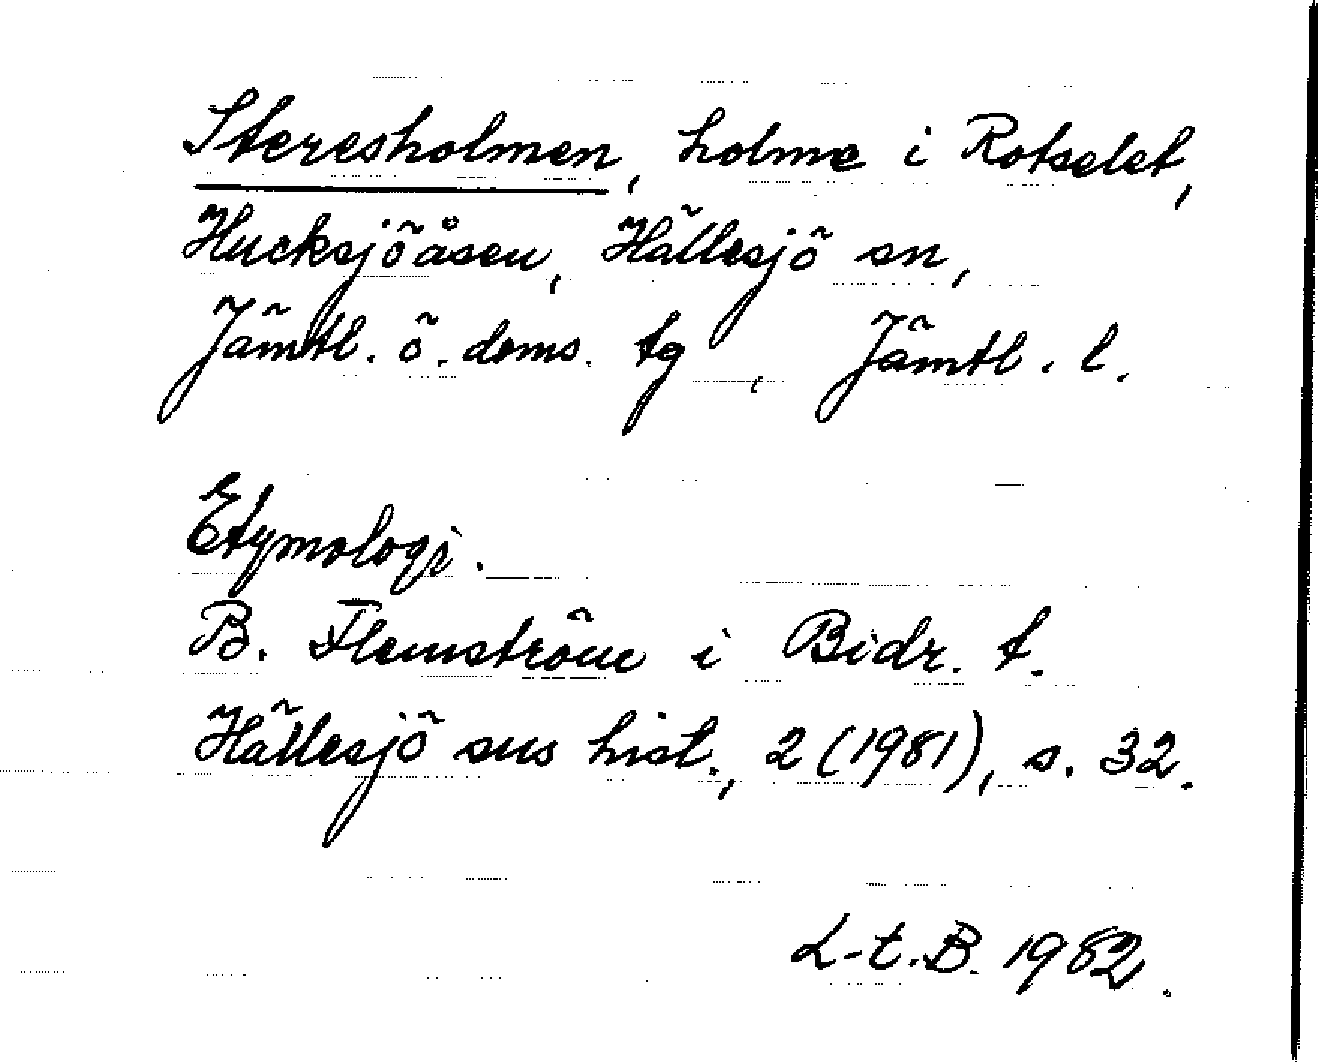 Steresholmen, holme i Rotselet,
Hucksjöåsen, Hällesjö sn,
Jämtl. ö. doms. tg, Jämtl. l.
Etymologi.
B. Flemström i Bidr. t.
Hällesjö sns hist., 2 (1981), s. 32.
L-t.B. 1982.